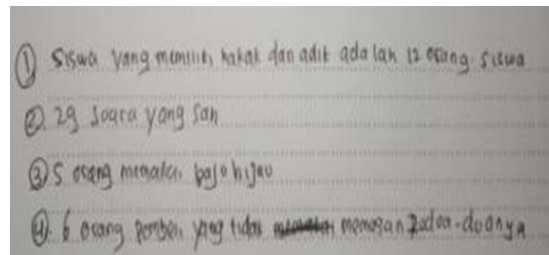 ① Siswa yang memiliki kakak dan adik adalah 12 orang siswa
②. 29 soara yang sah
③ 5 orang memakai bajo hijau
④. 6 orang pembeli yang tidak memesan kedoa-duanya